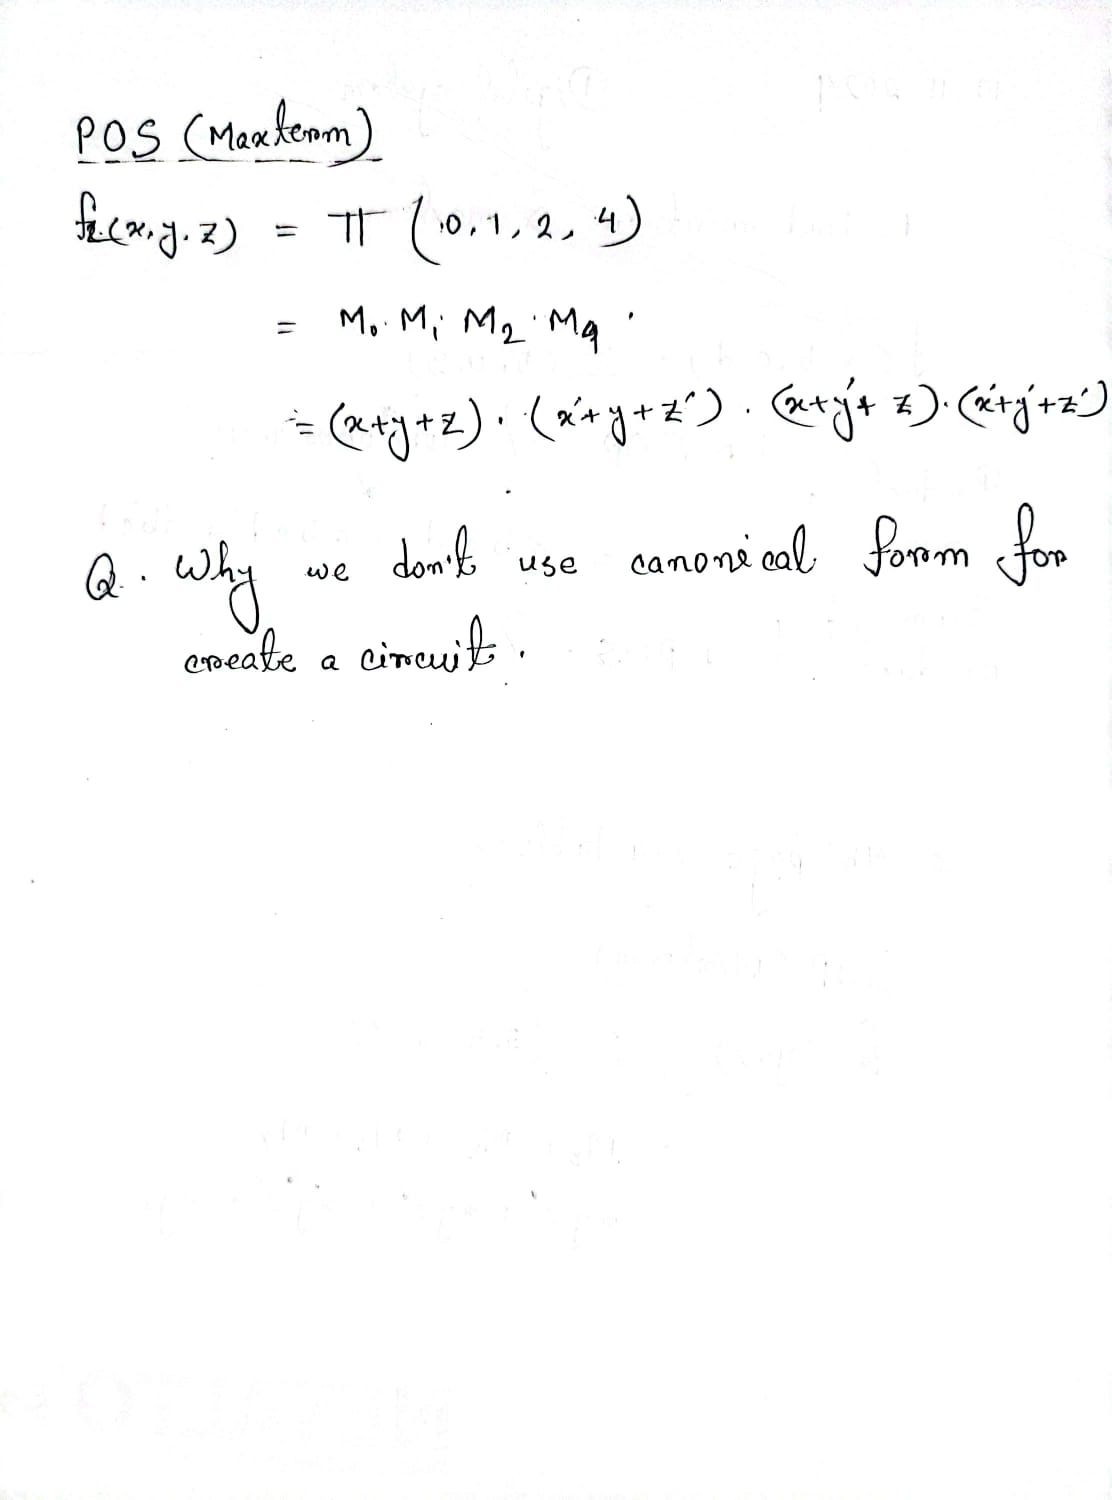 POS (Maxterm)
f₂(x, y, z) = π (0, 1, 2, 4)
= M₀ . M₁ . M₂ . M₄ .
= (x+y+z) . (x'+y+z') . (x+y'+z) . (x'+y'+z')
Q. Why we don't use canonical form for
create a circuit .